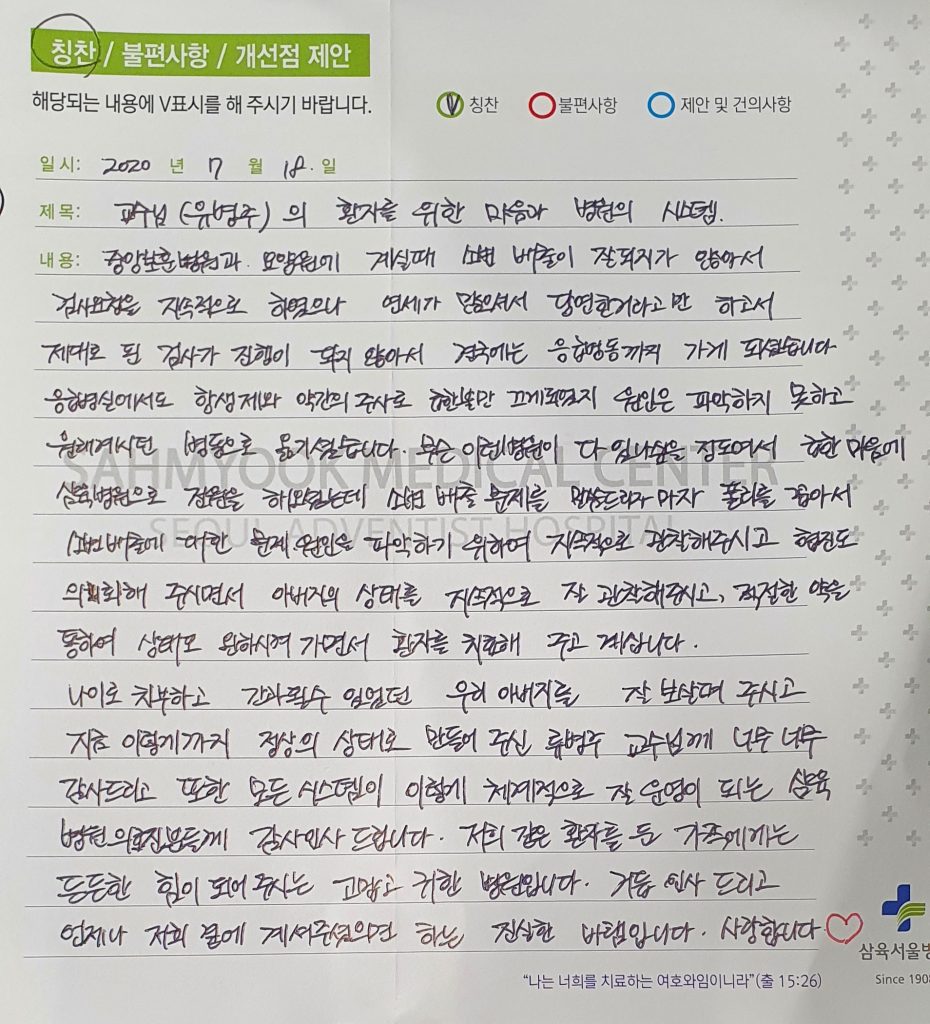 칭찬 / 불편사항 / 개선점 제안
해당되는 내용에 V표시를 해 주시기 바랍니다. V 칭찬 불편사항 제안 및 건의사항
일시: 2020 년 7 월 18. 일
제목: 교수님 (유병주) 의 환자를 위한 마음과 병원의 시스템.
내용: 중앙보훈병원과 요양원에 계실때 소변 배출이 잘되지가 않아서
검사요청을 지속적으로 하였으나 연세가 많으셔서 당연한거라고만 하고서
제대로 된 검사가 진행이 되지 않아서 결국에는 응급병동까지 가게 되셨습니다
응급병실에서도 항생제와 약간의 주사로 급한불만 끄게되었지 원인은 파악하지 못하고
원래계시던 병동으로 옮기셨습니다. 무슨 이런병원이 다 있나싶을 정도여서 급한 마음에
SAHMYOOK MEDICAL CENTER
삼육병원으로 전원을 하였는데 소변 배출 문제를 말씀드리자 마자 폴리를 꼽아서
SEOUL ADVENTIST HOSPITAL
소변배출에 대한 문제 원인을 파악하기 위하여 지속적으로 관찰해주시고 협진도
의뢰해 주시면서 아버지의 상태를 지속적으로 잘 관찰해주시고, 적절한 약을
통하여 상태도 완화시켜 가면서 환자를 치료해 주고 계십니다.
나이로 치부하고 간과될수 있었던 우리 아버지를 잘 보살펴 주시고
지금 이렇게까지 정상의 상태로 만들어 주신 류병주 교수님께 너무 너무
감사드리고 또한 모든 시스템이 이렇게 체계적으로 잘 운영이 되는 삼육
병원 의료진분들께 감사인사 드립니다. 저희 같은 환자를 둔 가족에게는
든든한 힘이 되어 주시는 고맙고 귀한 병원입니다. 거듭 인사 드리고
언제나 저희 곁에 계셔주셨으면 하는 진실한 바램입니다. 사랑합니다♡
삼육서울병
Since 1908
“나는 너희를 치료하는 여호와임이니라”(출 15:26)